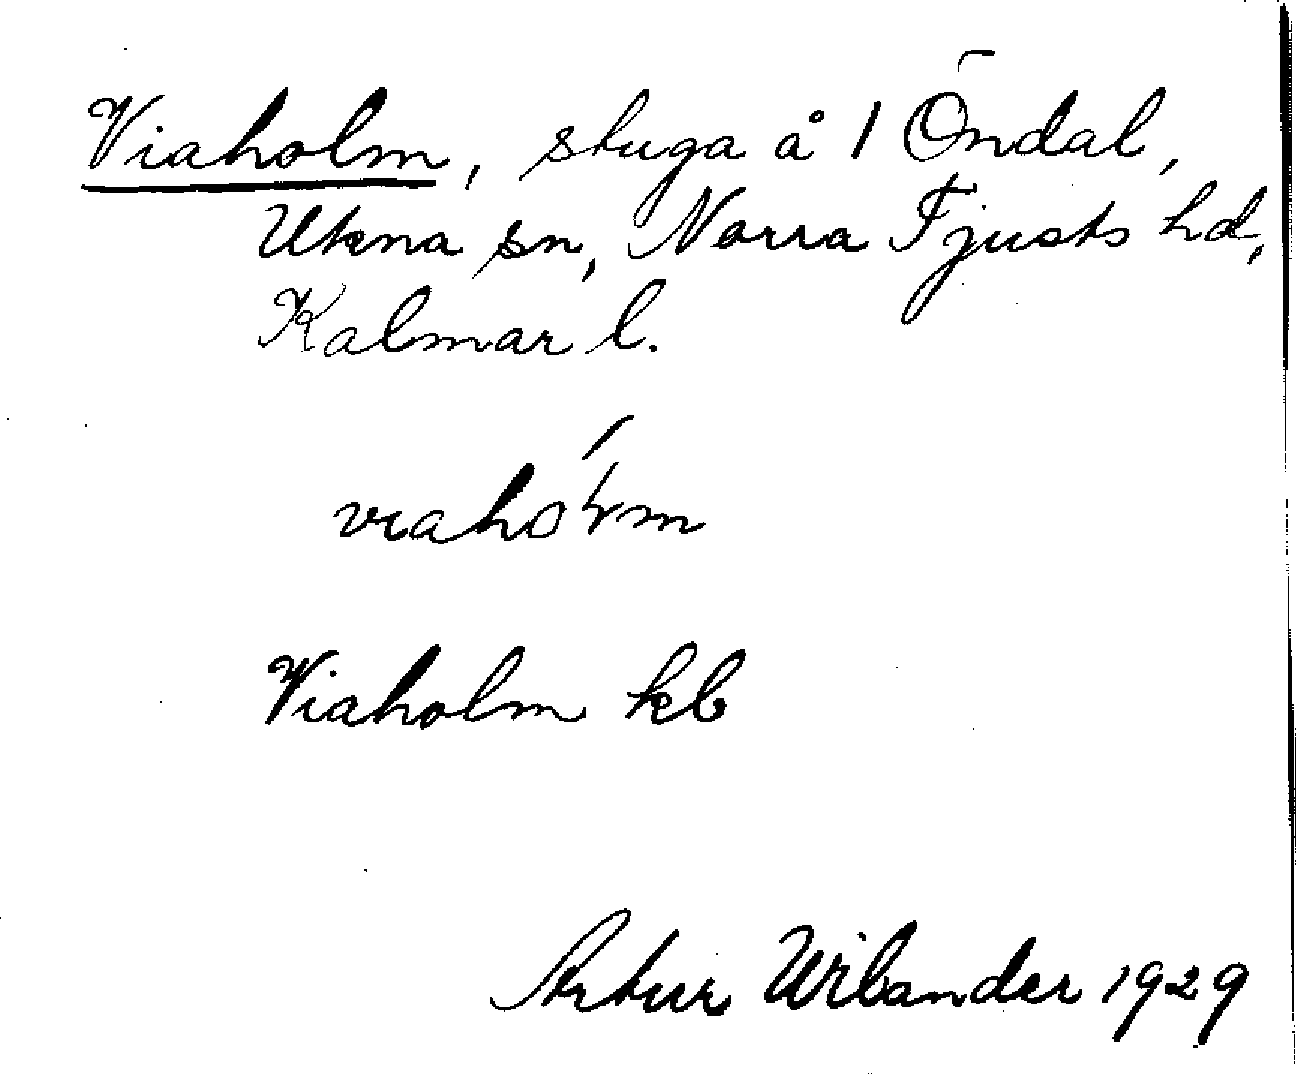 Viaholm, stuga å 1 Öndal,
Ukna sn, Norra Tjusts hd,
Kalmar l.
Viaholm kb
Artur Wilander 1929